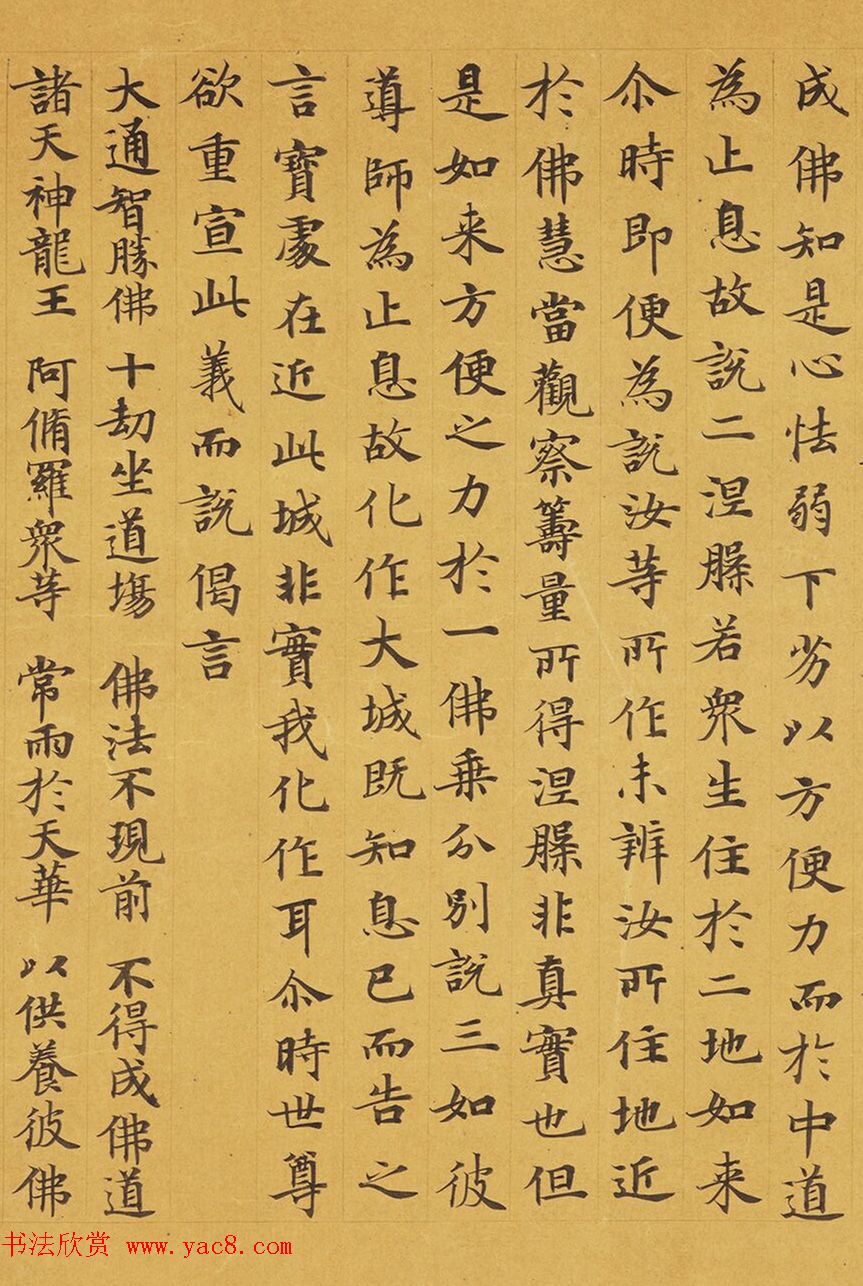 成佛知是心怯弱下劣以方便力而於中道
為止息故說二涅槃若衆生住於二地如来
尒時即便為說汝等所作未辨汝所住地近
於佛慧當觀察籌量所得涅槃非真實也但
是如来方便之力於一佛乗分別說三如彼
導師為止息故化作大城既知息已而告之
言寳處在近此城非實我化作耳尒時世尊
欲重宣此義而說偈言
大通智勝佛 十劫坐道塲 佛法不現前 不得成佛道
諸天神龍王 阿脩羅衆等 常雨於天華 以供養彼佛
书法欣赏 www.yac8.com